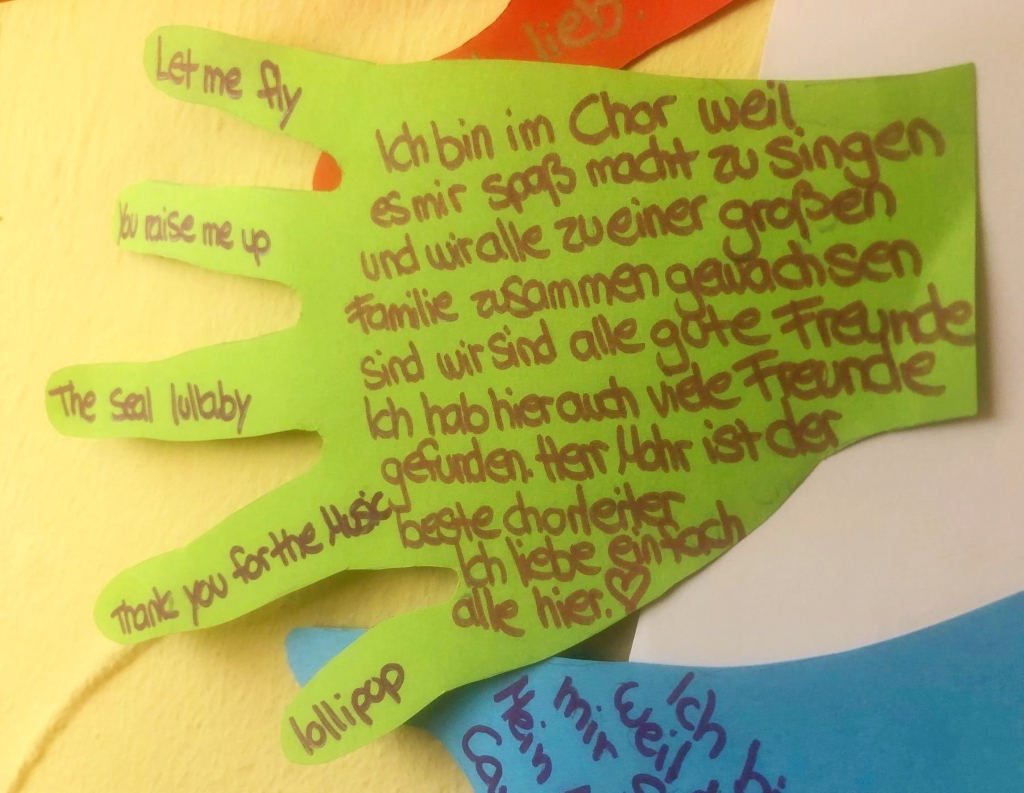 lieb.
Let me fly
You raise me up
The seal lullaby
Thank you for the Music
lollipop
Ich bin im Chor weil
es mir spaß macht zu singen
und wir alle zu einer großen
Familie zusammen gewachsen
sind wir sind alle gute Freunde
Ich hab hier auch viele Freunde
gefunden. Herr Mohr ist der
beste chorleiter
Ich liebe einfach
alle hier.♡
Ich
weil
mir